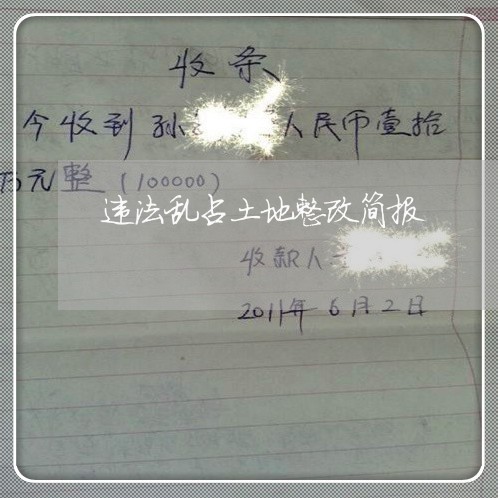 收条
今收到孙 人民币壹拾
万元整(100000)
违法乱占土地整改简报
收款人
2011年6月2日